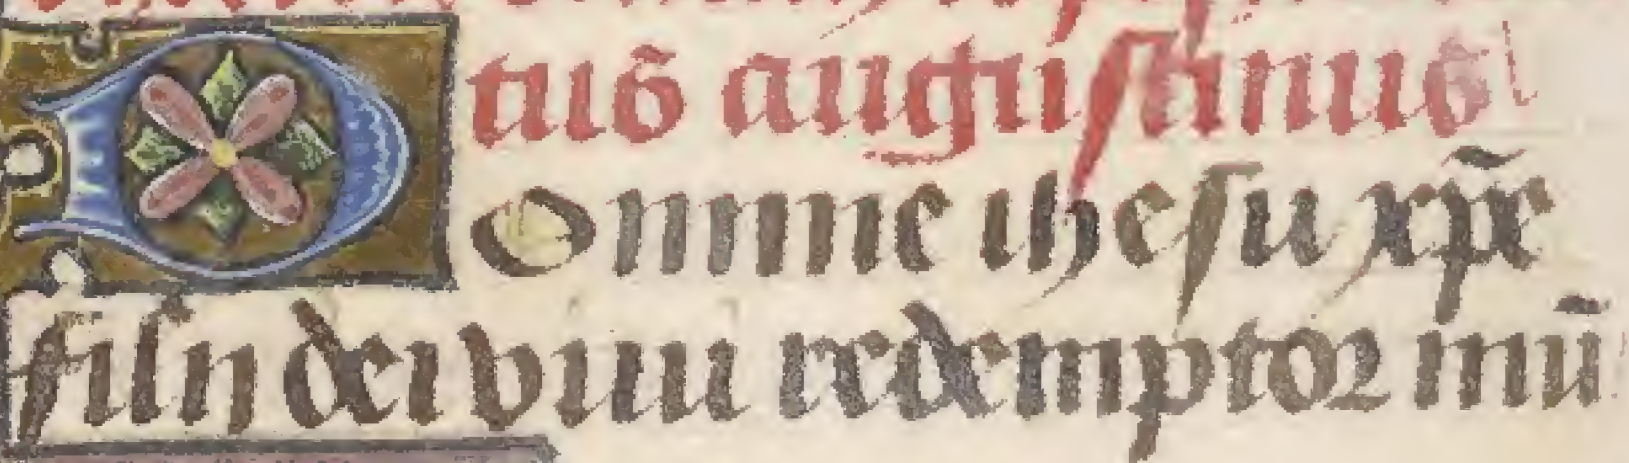 tus augustinus
Domine ihesu xp̄e
filij dei viui redemptor mū